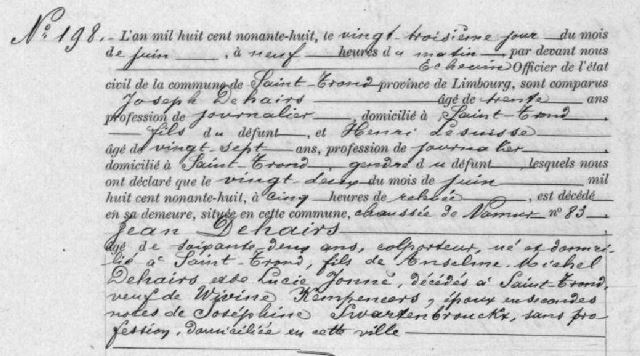 N° 198. L'an mil huit cent nonante-huit, le vingt-troisième jour du mois
de juin, à neuf heures du matin par devant nous
Echevin Officier de l'état
civil de la commune de Saint-Trond province de Limbourg, sont comparus
Joseph Dehairs âgé de trente ans
profession de journalier, domicilié à Saint-Trond
fils du défunt, et Henri Lesuisse
âgé de vingt sept ans, profession de journalier
domicilié à Saint-Trond, gendre du défunt, lesquels nous
ont déclaré que le vingt deux du mois de juin mil
huit cent nonante-huit, à cinq heures de relevée, est décédé
en sa demeure, située en cette commune, chaussée de Namur n° 83.
Jean Dehairs
âgé de soixante-deux ans, colporteur, né et domici-
lié à Saint-Trond, fils de Anselme-Michel
Dehairs et de Lucie Jonné, décédés à Saint-Trond,
veuf de Wivine Kempeneers, époux en secondes
noces de Joséphine Swartenbrouckx, sans pro-
fession, domiciliée en cette ville